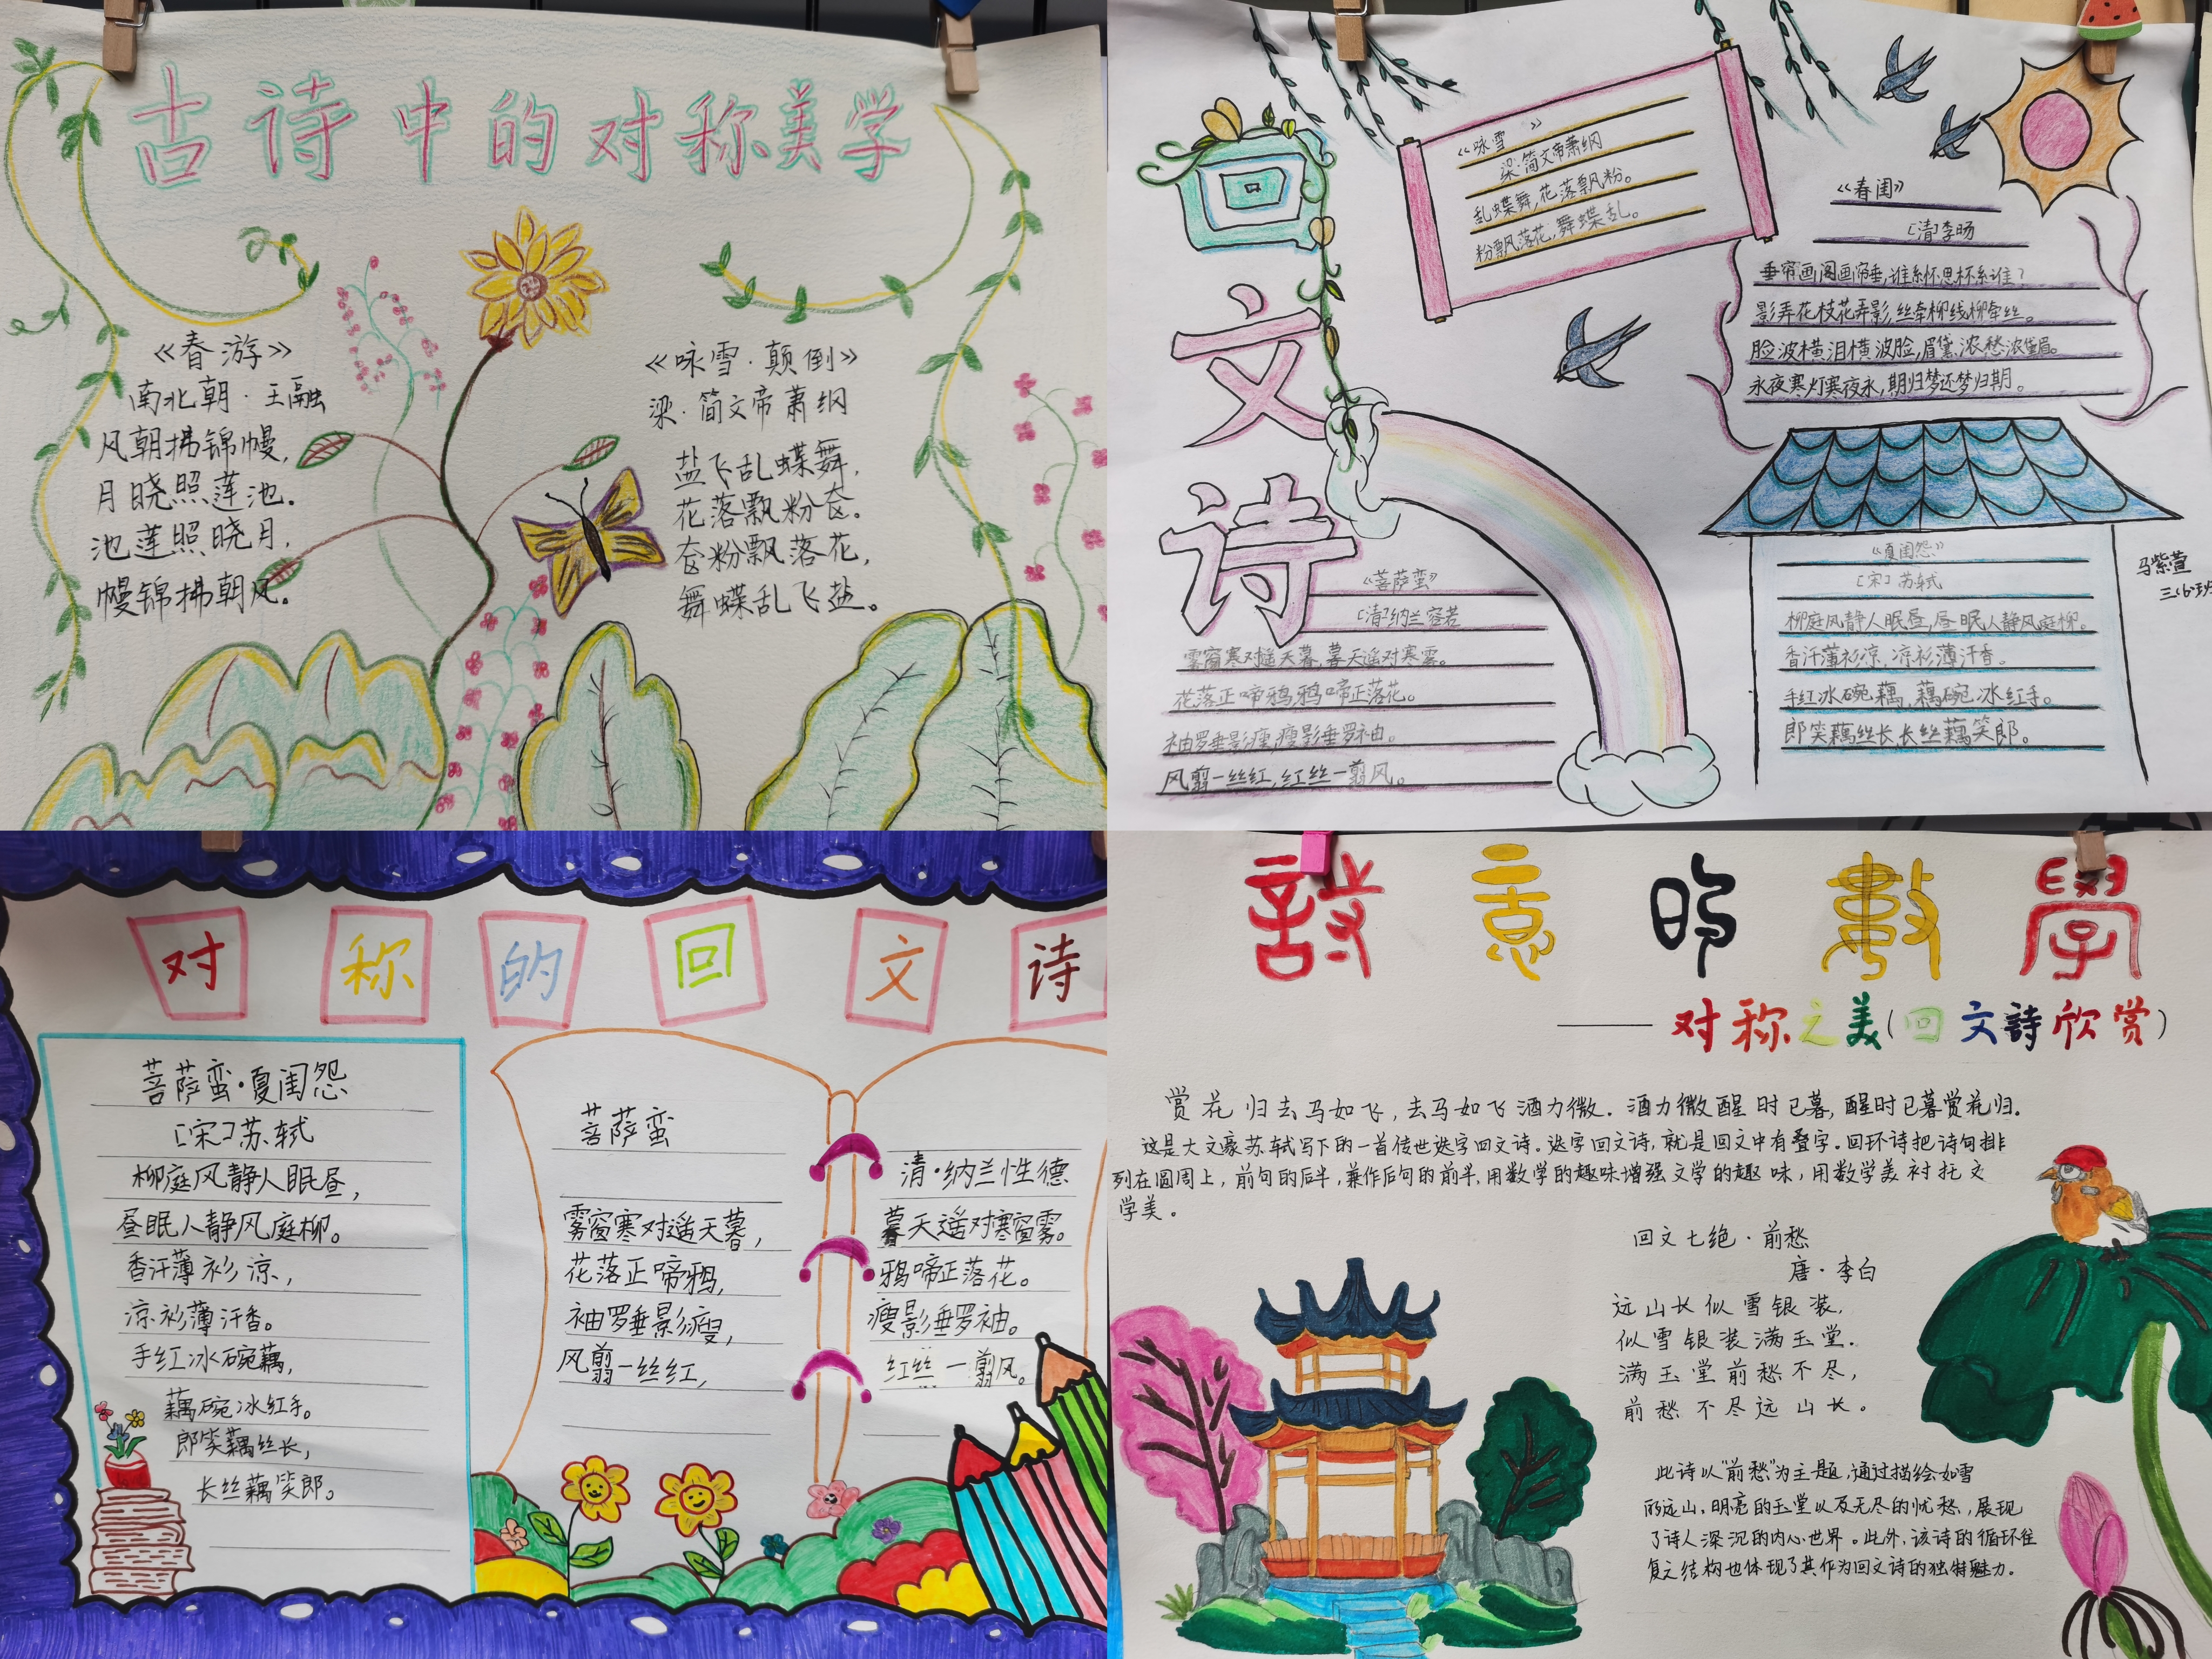 古诗中的对称美学
《春游》
南北朝·王融
风朝拂锦幔,
月晓照莲池.
池莲照晓月,
幔锦拂朝风。
《咏雪·颠倒》
梁·简文帝萧纲
盐飞乱蝶舞,
花落飘粉奁.
奁粉飘落花,
舞蝶乱飞盐。
回文诗
《咏雪》
梁·简文帝萧纲
乱蝶舞,花落飘风粉。
粉飘风落花,舞蝶乱。
《春闺》
[清]李旸
垂帘画阁画帘垂,谁系怀思怀系谁?
影弄花枝花弄影,丝牵柳线柳牵丝。
脸波横泪横波脸,眉黛浓愁浓黛眉。
永夜寒灯寒夜永,期归梦还梦归期。
《菩萨蛮》
[清]纳兰容若
雾窗寒对遥天暮,暮天遥对寒雾。
花落正啼鸦,鸦啼正落花。
袖罗垂影瘦,瘦影垂罗袖。
风翦一丝红,红丝一翦风。
《夏闺怨》
[宋]苏轼
柳庭风静人眠昼,昼眠人静风庭柳。
香汗薄衫凉,凉衫薄汗香。
手红冰碗藕,藕碗冰红手。
郎笑藕丝长,长丝藕笑郎。
马紫萱
三(6)班
对称的回文诗
菩萨蛮·夏闺怨
[宋]苏轼
柳庭风静人眠昼,
昼眠人静风庭柳。
香汗薄衫凉,
凉衫薄汗香。
手红冰碗藕,
藕碗冰红手。
郎笑藕丝长,
长丝藕笑郎。
菩萨蛮
雾窗寒对遥天暮,
花落正啼鸦,
袖罗垂影瘦,
风翦一丝红,
清·纳兰性德
暮天遥对寒窗雾。
鸦啼正落花。
瘦影垂罗袖。
红丝一翦风。
設意的數學
——对称之美(回文詩欣赏)
赏花归去马如飞,去马如飞酒力微.酒力微醒时已暮,醒时已暮赏花归.
这是大文豪苏轼写下的一首传世迭字回文诗。迭字回文诗,就是回文中有叠字.回环诗把诗句排
列在圆周上,前句的后半,兼作后句的前半,用数学的趣味增强文学的趣味,用数学美衬托文
学美。
回文七绝·前愁
唐·李白
远山长似雪银装,
似雪银装满玉堂.
满玉堂前愁不尽,
前愁不尽远山长。
此诗以"前愁"为主题,通过描绘如雪
的远山,明亮的玉堂以及无尽的忧愁,展现
了诗人深沉的内心世界。此外,该诗的循环往
复之结构也体现了其作为回文诗的独特魅力.